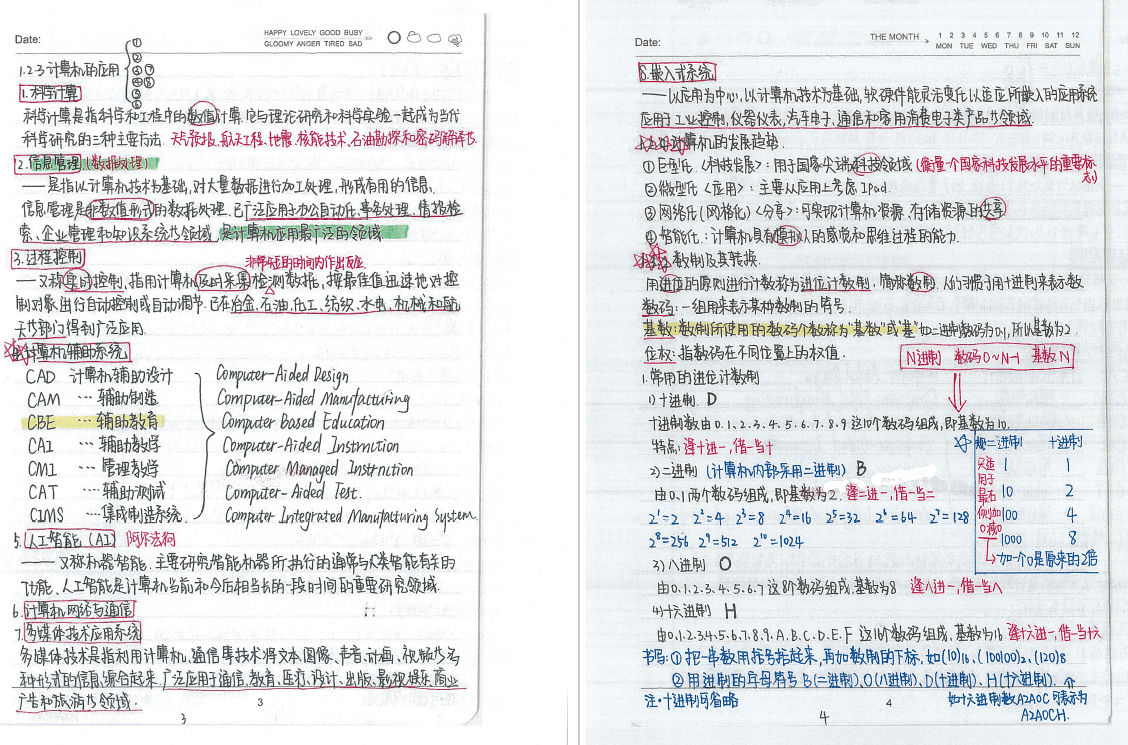 Date:
HAPPY LOVELY GOOD BUSY
GLOOMY ANGER TIRED SAD >>
1.2.3 计算机的应用 ① ② ③ ④ ⑤ ⑥ ⑦ ⑧
1.科学计算
科学计算是指科学和工程中的数值计算,它与理论研究和科学实验一起成为当代
科学研究的三种主要方法. 天气预报、航天工程、地震、核能技术、石油勘探和密码解译等
2.信息管理(数据处理)
——是指以计算机技术为基础,对大量数据进行加工处理,形成有用的信息.
信息管理是非数值形式的数据处理.已广泛应用于办公自动化、事务处理、情报检
索、企业管理和知识系统等领域.是计算机应用最广泛的领域
3.过程控制
非常短的时间内作出反应
——又称实时控制,指用计算机及时采集检测数据,按最佳值迅速地对控
制对象进行自动控制或自动调节.已在冶金、石油、化工、纺织、水电、机械和航
天等部门得到广泛应用.
4.计算机辅助系统
CAD 计算机辅助设计 Computer-Aided Design
CAM ··· 辅助制造 Computer-Aided Manufacturing
CBE ··· 辅助教育 Computer Based Education
CAI ··· 辅助教学 Computer-Aided Instruction
CMI ··· 管理教学 Computer Managed Instruction
CAT ··· 辅助测试 Computer-Aided Test.
CIMS ··· 集成制造系统 Computer Integrated Manufacturing System
5.人工智能(AI) 阿尔法狗
——又称机器智能.主要研究智能机器所执行的通常与人类智能有关的
功能.人工智能是计算机当前和今后相当长的一段时间的重要研究领域.
6.计算机网络与通信
7.多媒体技术应用系统
多媒体技术是指利用计算机、通信等技术将文本、图像、声音、动画、视频等多
种形式的信息综合起来.广泛应用于通信、教育、医疗、设计、出版、影视娱乐、商业
广告和旅游等领域.
3
3
Date:
THE MONTH > 1 2 3 4 5 6 7 8 9 10 11 12
MON TUE WED THU FRI SAT SUN
8.嵌入式系统
——以应用为中心,以计算机技术为基础,软硬件能灵活变化以适应所嵌入的应用系统
应用于工业控制、仪器仪表、汽车电子、通信和家用消费电子类产品等领域.
计算机的发展趋势
①巨型化<科技发展>:用于国家尖端科技领域(衡量一个国家科技发展水平的重要标
志)
②微型化<应用>:主要从应用上考虑 Ipad.
③网络化(网格化)<分享>:可实现计算机资源、存储资源的共享
④智能化:计算机具有模拟人的感觉和思维过程的能力.
数制及其转换
用进位的原则进行计数称为进位计数制,简称数制.人们习惯于用十进制来表示数
数码:一组用来表示某种数制的符号.
基数:数制所使用的数码个数称为“基数”或“基”如二进制数码为0,1,所以基数为2.
位权:指数码在不同位置上的权值.
N进制 数码0~N-1 基数N
1.常用的进位计数制
1)十进制. D
十进制数由0.1.2.3.4.5.6.7.8.9这10个数码组成,即基数为10.
特点:逢十进一,借一当十
2)二进制(计算机内部采用二进制) B
由0.1两个数码组成,即基数为2. 逢二进一,借一当二
2¹=2 2²=4 2³=8 2⁴=16 2⁵=32 2⁶=64 2⁷=128
2⁸=256 2⁹=512 2¹⁰=1024
二进制 十进制
1 1
10 2
100 4
1000 8
只适用于最右侧加0或减0
加一个0是原来的2倍
3)八进制 O
由0.1.2.3.4.5.6.7这8个数码组成,基数为8 逢八进一,借一当八
4)十六进制 H
由0.1.2.3.4.5.6.7.8.9.A.B.C.D.E.F这16个数码组成,基数为16 逢十六进一,借一当十六
书写:①把一串数用括号括起来,再加数制的下标,如(10)16、(100100)2、(120)8
②用进制的字母符号B(二进制)、O(八进制)、D(十进制)、H(十六进制).
注:十进制可省略
如十六进制数A2A0C可表示为
A2A0CH.
4
4